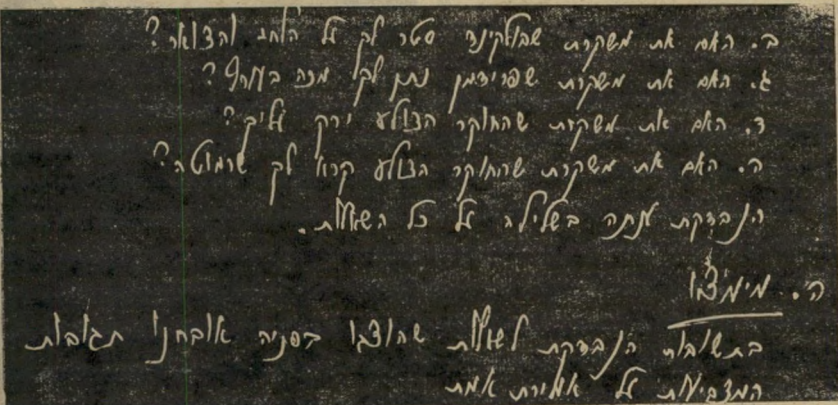 ב. האם את משקרת שבולקינד סטר לך על הלחי והצואר?
ג. האם את משקרת שפרידמן נתן לך מכה בעורף?
ד. האם את משקרת שהחוקר הצולע ירק עליך?
ה. האם את משקרת שהחוקר הצולע קרא לך שרמוטה?
הנבדקת ענתה בשלילה על כל השאלות.
ה. מימצאו
בתשובות הנבדקת לשאלות שהוצגו בפניה אובחנו תגובות
המצביעות על אמירת אמת